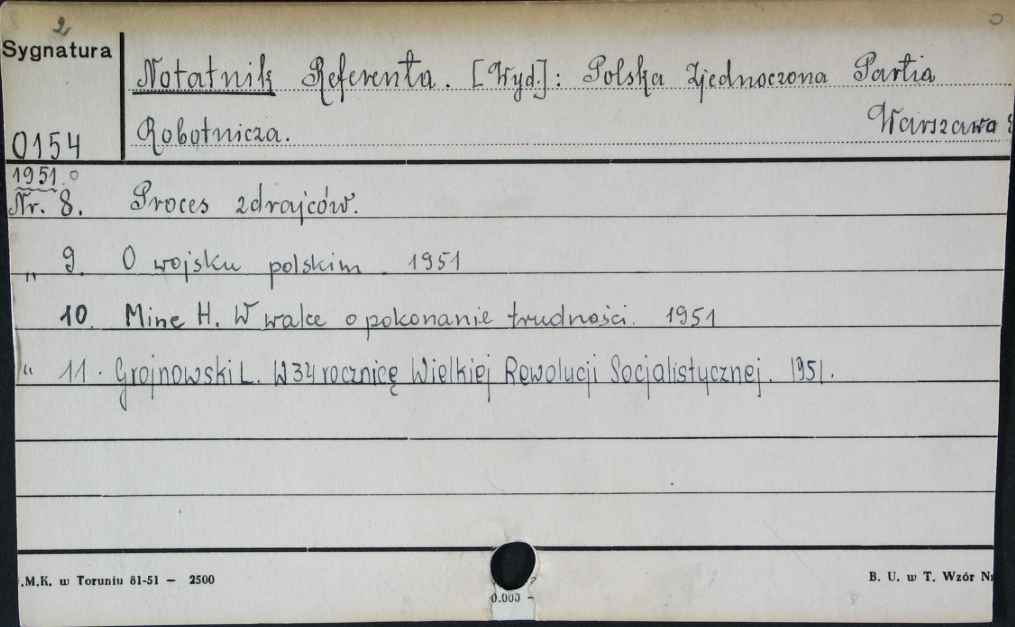 2
Sygnatura
Notatnik Referenta. [Wyd.]: Polska Zjednoczona Partia
Robotnicza. Warszawa
0154
1951.
Nr. 8. Proces zdrajców.
„ 9. O wojsku polskim. 1951
10. Minc H. W walce o pokonanie trudności. 1951
„ 11. Grojnowski L. W 34 rocznicę Wielkiej Rewolucji Socjalistycznej. 1951.
.M.K. w Toruniu 81-51 — 2500
B. U. w T. Wzór Nr
0.000 —